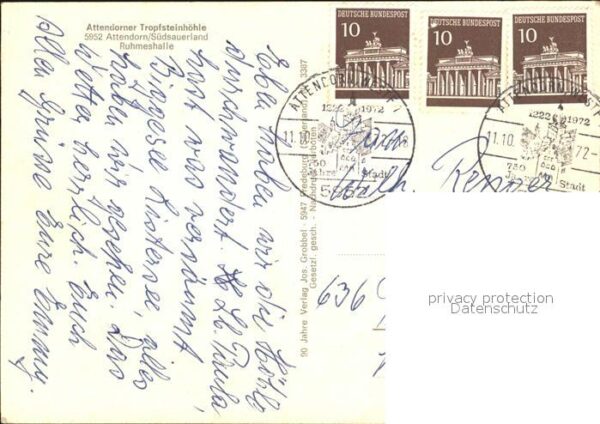 Attendorner Tropfsteinhöhle
5952 Attendorn/Südsauerland
Ruhmeshalle
Eben haben wir die Höhle
durchwandert.
hast was versäumt
Biggesee Listersee, alles
haben wir gesehen. Das
Wetter herrlich. Euch
allen Grüße Eure Emmy.
90 Jahre Verlag Jos. Grobbel - 5947 Fredeburg (Sauerland) 3387
Gesetzl. gesch. - Nachdruck verboten
DEUTSCHE BUNDESPOST
10
DEUTSCHE BUNDESPOST
10
DEUTSCHE BUNDESPOST
10
ATTENDORN, WESTF
1222 1972
11.10.
750
Jahre Stadt
5952
ATTENDORN, WESTF
1222 1972
11.10. 72-
750
Jahre Stadt
636
privacy protection
Datenschutz